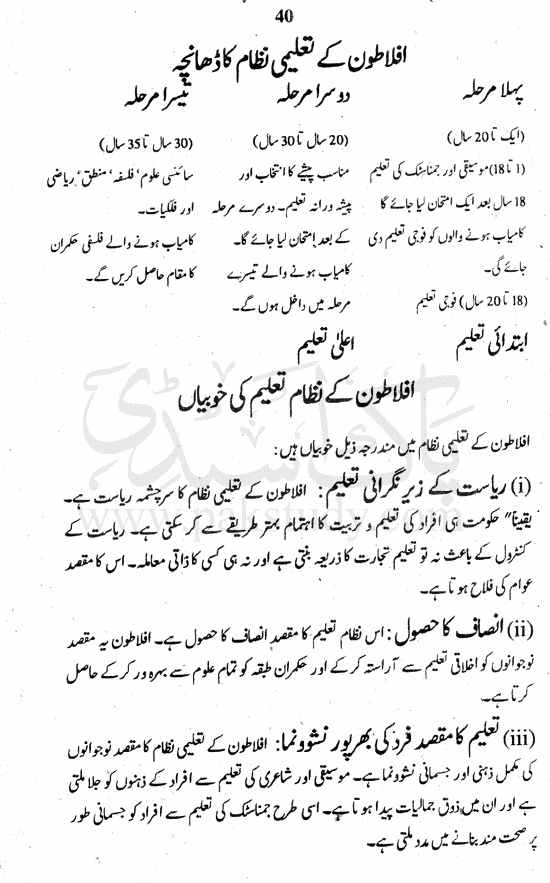 40
افلاطون کے تعلیمی نظام کا ڈھانچہ
پہلا مرحلہ
دوسرا مرحلہ
تیسرا مرحلہ
(ایک تا 20 سال)
(1 تا 18) موسیقی اور جمناسٹک کی تعلیم
18 سال بعد ایک امتحان لیا جائے گا
کامیاب ہونے والوں کو فوجی تعلیم دی
جائے گی۔
(18 تا 20 سال) فوجی تعلیم
ابتدائی تعلیم
(20 سال تا 30 سال)
مناسب پیشے کا انتخاب اور
پیشہ ورانہ تعلیم۔ دوسرے مرحلہ
کے بعد امتحان لیا جائے گا۔
کامیاب ہونے والے تیسرے
مرحلہ میں داخل ہوں گے۔
اعلیٰ تعلیم
(30 سال تا 35 سال)
سائنسی علوم، فلسفہ، منطق، ریاضی
اور فلکیات۔
کامیاب ہونے والے فلسفی حکمران
کا مقام حاصل کریں گے۔
افلاطون کے نظام تعلیم کی خوبیاں
افلاطون کے تعلیمی نظام میں مندرجہ ذیل خوبیاں ہیں:
(i) ریاست کے زیر نگرانی تعلیم: افلاطون کے تعلیمی نظام کا سرچشمہ ریاست ہے۔
یقیناً" حکومت ہی افراد کی تعلیم و تربیت کا اہتمام بہتر طریقے سے کر سکتی ہے۔ ریاست کے
کنٹرول کے باعث نہ تو تعلیم تجارت کا ذریعہ بنتی ہے اور نہ ہی کسی کا ذاتی معاملہ۔ اس کا مقصد
عوام کی فلاح ہوتا ہے۔
(ii) انصاف کا حصول: اس نظام تعلیم کا مقصد انصاف کا حصول ہے۔ افلاطون یہ مقصد
نوجوانوں کو اخلاقی تعلیم سے آراستہ کر کے اور حکمران طبقہ کو تمام علوم سے بہرہ ور کر کے حاصل
کرتا ہے۔
(iii) تعلیم کا مقصد فرد کی بھرپور نشوونما: افلاطون کے تعلیمی نظام کا مقصد نوجوانوں
کی مکمل ذہنی اور جسمانی نشوونما ہے۔ موسیقی اور شاعری کی تعلیم سے افراد کے ذہنوں کو جلا ملتی
ہے اور ان میں ذوق جمالیات پیدا ہوتا ہے۔ اسی طرح جمناسٹک کی تعلیم سے افراد کو جسمانی طور
پر صحت مند بنانے میں مدد ملتی ہے۔
پاک سٹڈی
www.pakstudy.com